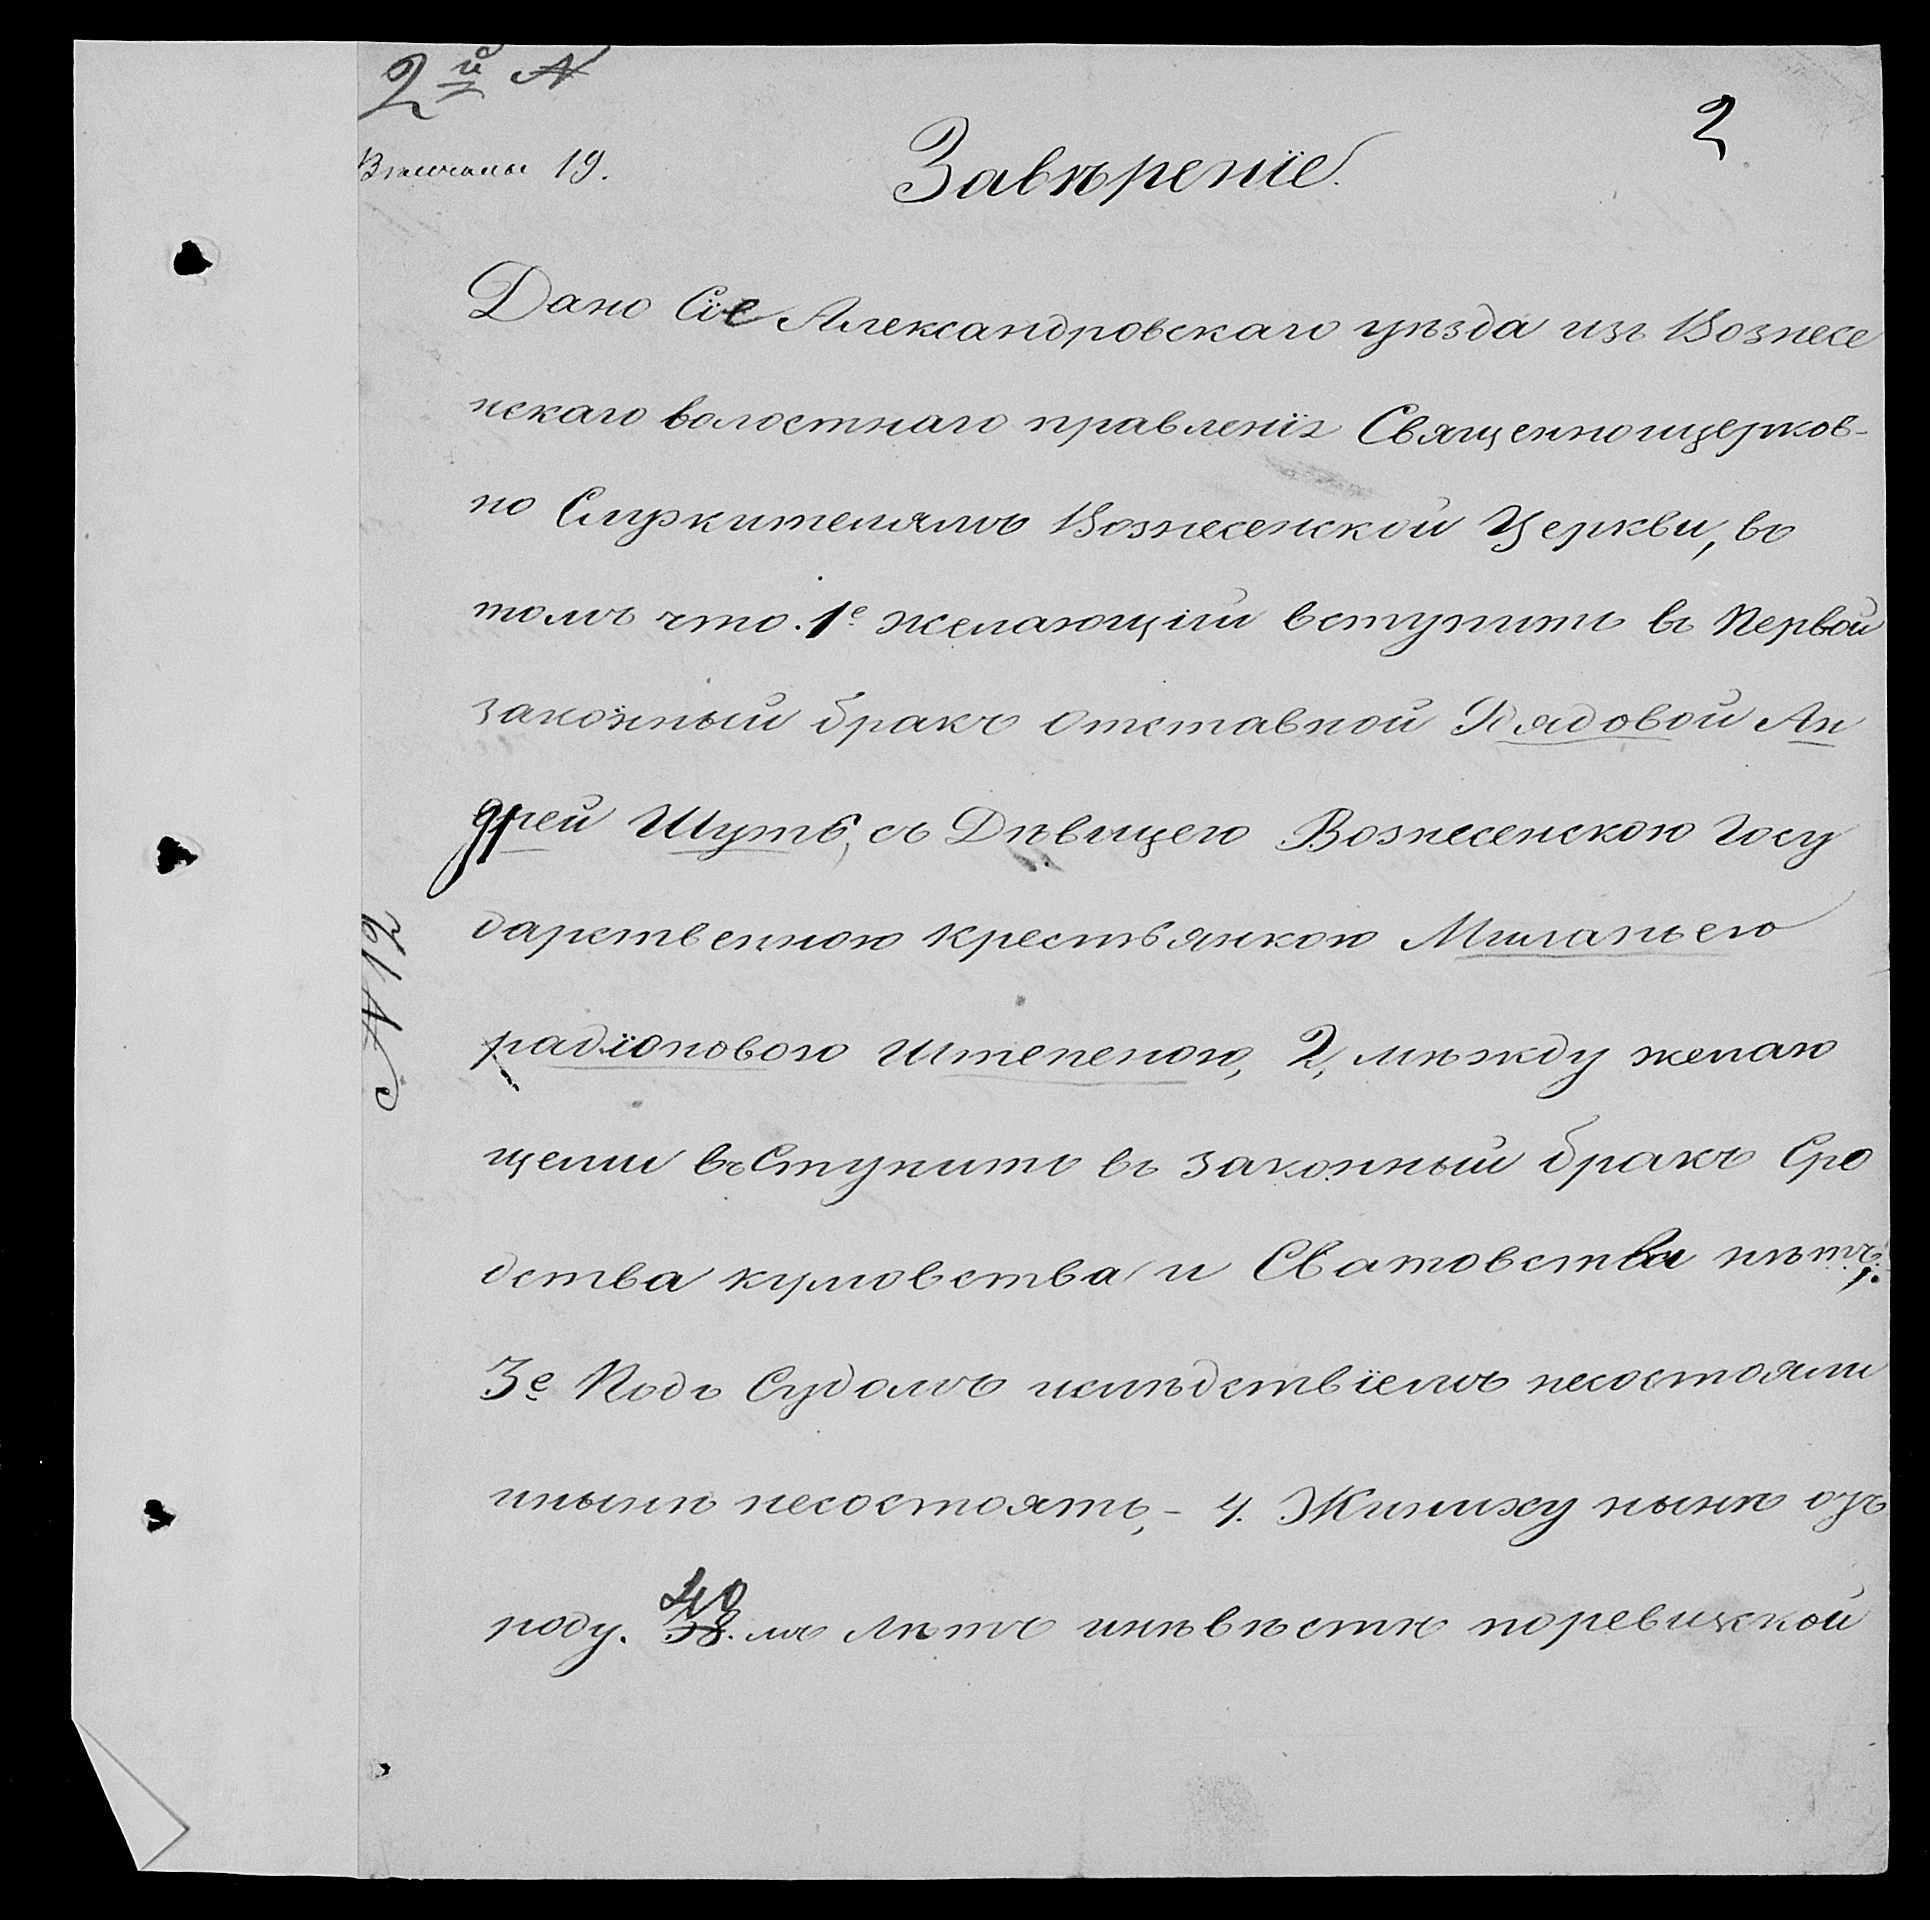 2й №
2
Вѣнчаны 19.
Завѣренïе.
Дано Сïе Александровскаго уѣзда изъ Вознесе
нскаго волостнаго правленïя Священноицерков-
но Служителямъ Вознесенской Церкви, въ
томъ что. 1е желающïй вступить въ Первой
законный бракъ отставной Рядовой Ан
дрей Шуть, съ Дѣвицею Вознесенскою Госу
дарственною крестьянкою Миланьею
радïоновою Штепеною, 2, мѣжду желаю
щеми въСтупить въ законный бракъ Сро
дства кумовства и Сватовства нѣтъ;
3е Подъ Судомъ ислѣдствïемъ несостояли
инынѣ несостоять, - 4. Жиниху нынѣ отъ
роду. 38. 40 мъ лѣтъ инѣвѣстѣ поревизкой
№ 12